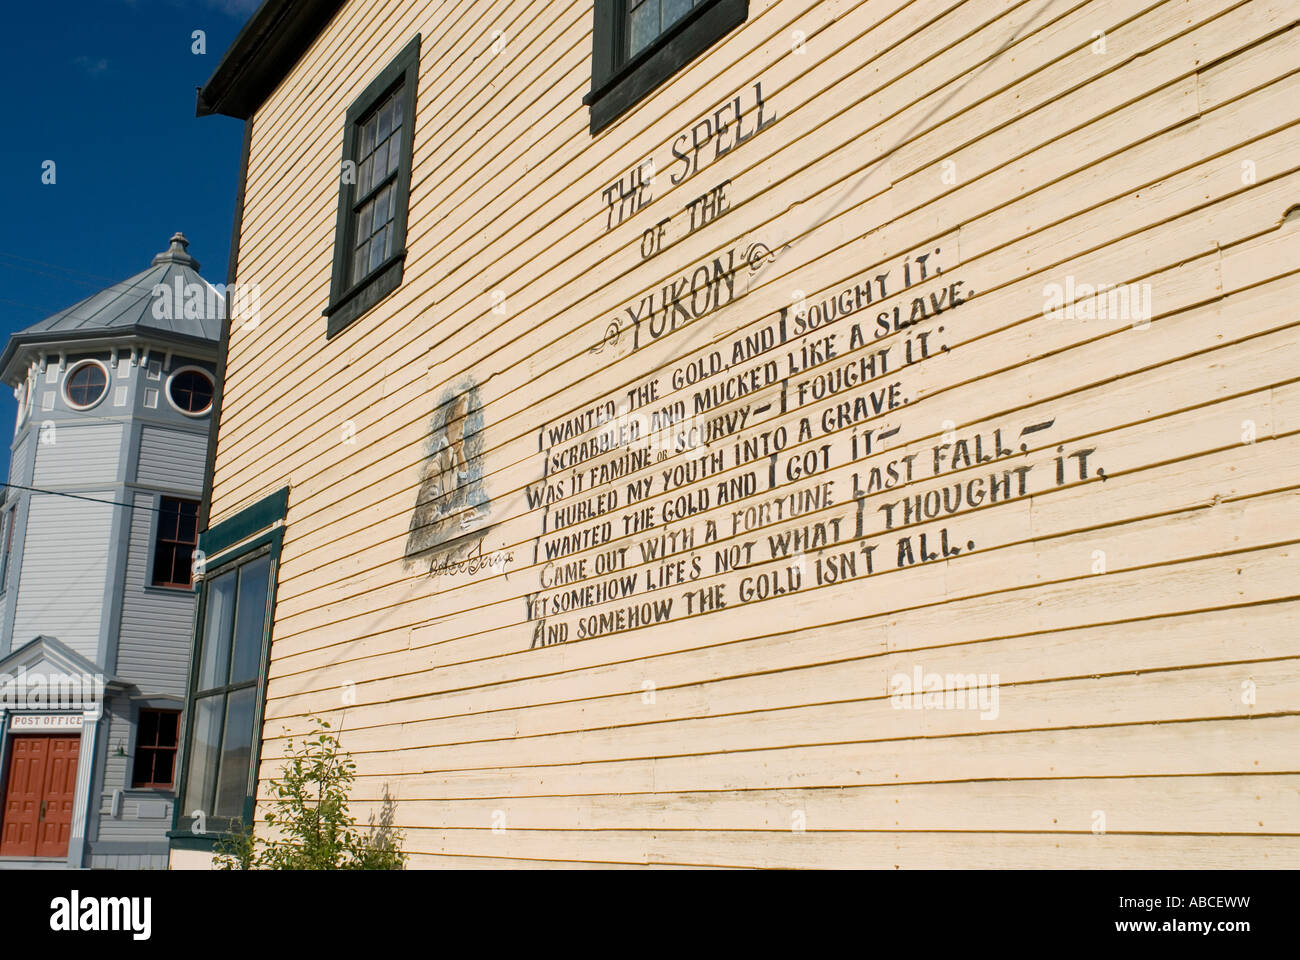 THE SPELL
OF THE
YUKON
I WANTED THE GOLD, AND I SOUGHT IT;
I SCRABBLED AND MUCKED LIKE A SLAVE.
WAS IT FAMINE OR SCURVY— I FOUGHT IT;
I HURLED MY YOUTH INTO A GRAVE.
I WANTED THE GOLD AND I GOT IT—
CAME OUT WITH A FORTUNE LAST FALL,—
YET SOMEHOW LIFE'S NOT WHAT I THOUGHT IT,
AND SOMEHOW THE GOLD ISN'T ALL.
POST OFFICE
alamy
alamy
alamy
alamy
alamy stock photo
ABCEWW
www.alamy.com